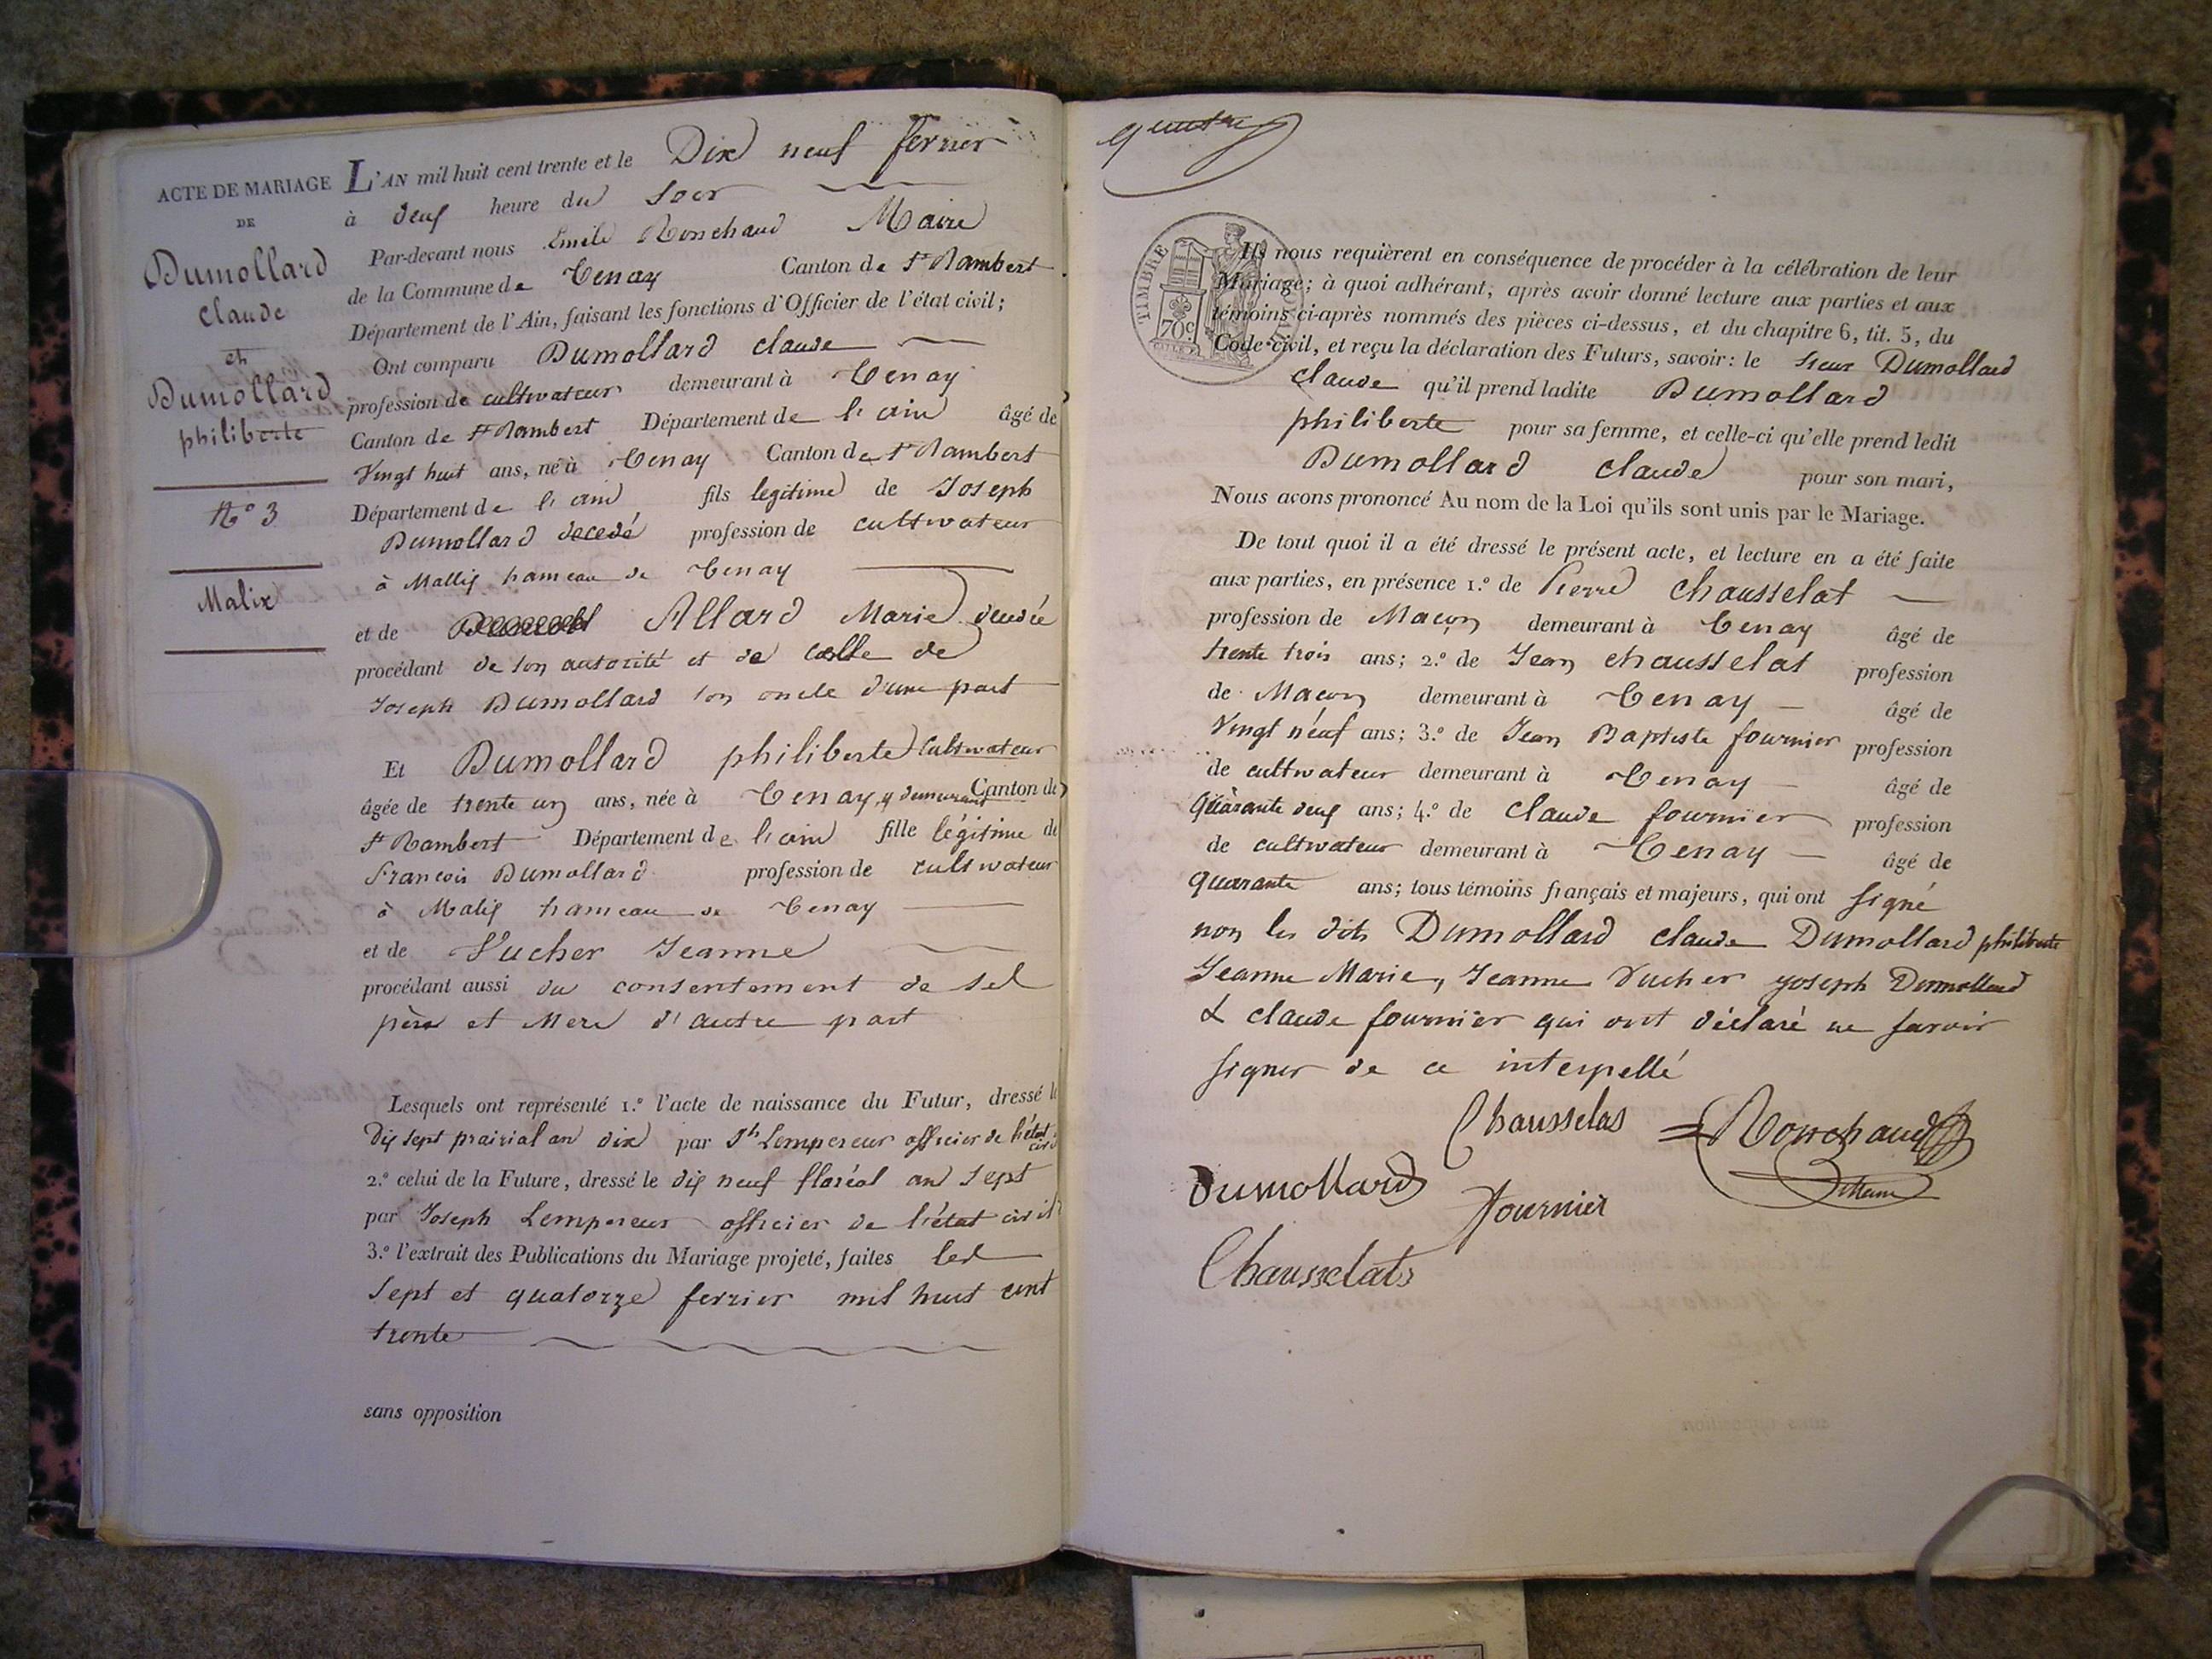 ACTE DE MARIAGE
DE
Dumollard
Claude
et
Dumollard
philiberte
N° 3
Malix
L'AN mil huit cent trente et le Dix neuf fevrier
à deux heure du soir
Par-devant nous Emile Ronchaud Maire
de la Commune de Tenay Canton de St Rambert
Département de l'Ain, faisant les fonctions d'Officier de l'état civil;
Ont comparu Dumollard claude
profession de cultivateur demeurant à Tenay
Canton de St Rambert Département de l'ain âgé de
Vingt huit ans, né à Tenay Canton de St Rambert
Département de l'ain fils legitime de Joseph
Dumollard decedé profession de cultivateur
à Mallix hameau de Tenay
et de Allard Marie decedée
procédant de son autorité et de celle de
Joseph Dumollard son oncle d'une part
Et Dumollard philiberte Cultivateur
âgée de trente un ans, née à Tenay, y demeurant Canton de
St Rambert Département de l'ain fille légitime de
François Dumollard profession de cultivateur
à Malix hameau de Tenay
et de Vucher Jeanne
procédant aussi du consentement de ses
père et Mere d'autre part
Lesquels ont représenté 1.º l'acte de naissance du Futur, dressé le
dix sept prairial an dix par Jh Lempereur officier de l'état civil
2.º celui de la Future, dressé le dix neuf floréal an sept
par Joseph Lempereur officier de l'état civil
3.º l'extrait des Publications du Mariage projeté, faites les
sept et quatorze fevrier mil huit cent
trente
sans opposition
TIMBRE
70c
Ils nous requièrent en conséquence de procéder à la célébration de leur
Mariage; à quoi adhérant, après avoir donné lecture aux parties et aux
témoins ci-après nommés des pièces ci-dessus, et du chapitre 6, tit. 5, du
Code-civil, et reçu la déclaration des Futurs, savoir: le sieur Dumollard
claude qu'il prend ladite Dumollard
philiberte pour sa femme, et celle-ci qu'elle prend ledit
Dumollard claude pour son mari,
Nous avons prononcé Au nom de la Loi qu'ils sont unis par le Mariage.
De tout quoi il a été dressé le présent acte, et lecture en a été faite
aux parties, en présence 1.º de Pierre Chausselat
profession de Maçon demeurant à Tenay âgé de
trente trois ans; 2.º de Jean chausselat profession
de Maçon demeurant à Tenay âgé de
Vingt neuf ans; 3.º de Jean Baptiste fournier profession
de cultivateur demeurant à Tenay âgé de
quarante deux ans; 4.º de claude fournier profession
de cultivateur demeurant à Tenay âgé de
quarante ans; tous témoins français et majeurs, qui ont signé
non les dits Dumollard claude Dumollard philiberte
Jeanne Marie, Jeanne Vucher joseph Dumollard
& claude fournier qui ont déclaré ne savoir
signer de ce interpellé
Chausselas Ronchaud
Maire
Dumollard
fournier
Chausselats